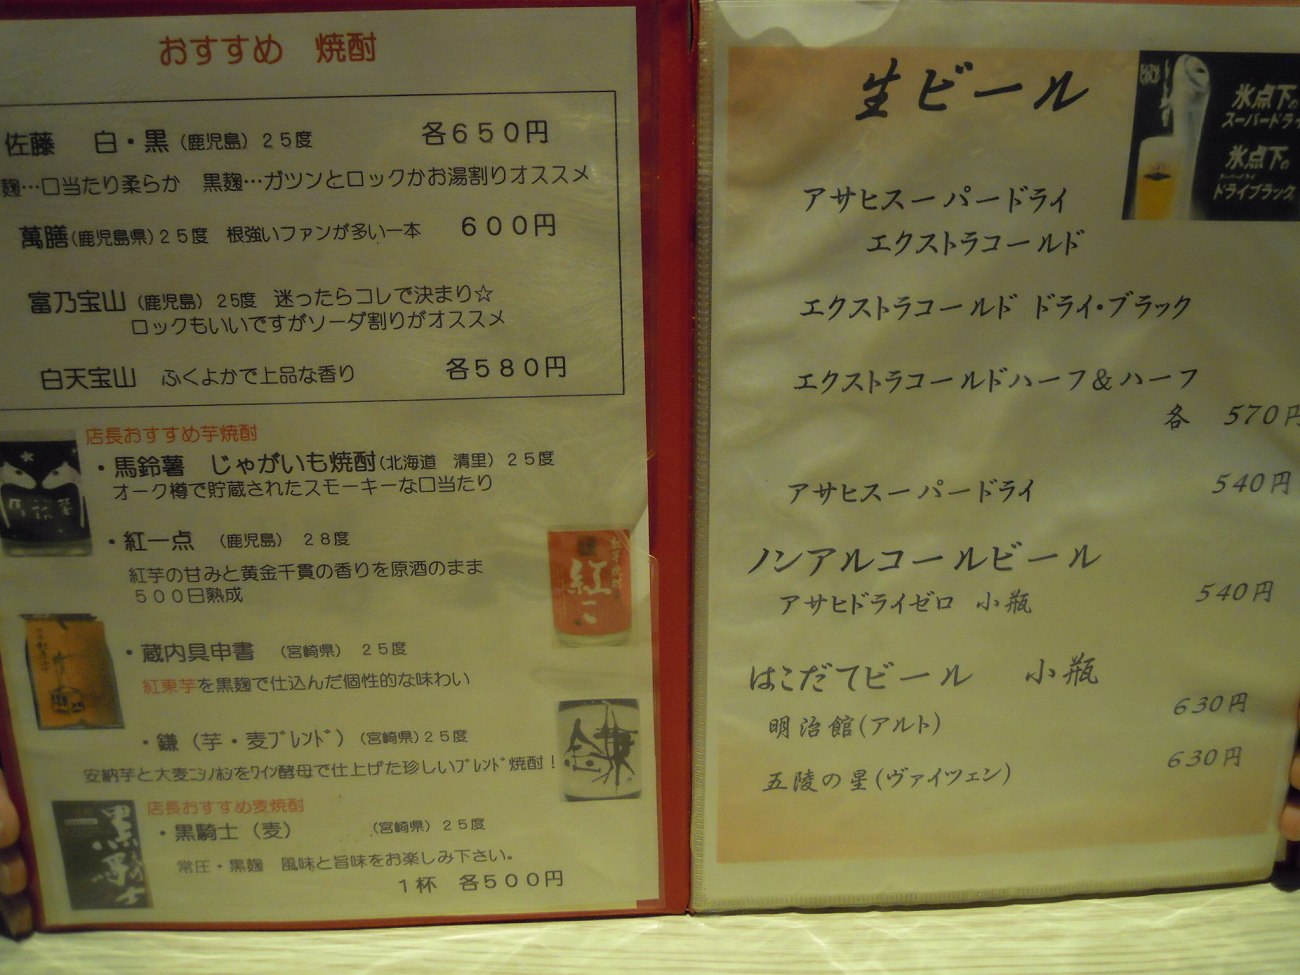 おすすめ 焼酎
佐藤 白・黒(鹿児島)25度 各650円
麹…口当たり柔らか 黒麹…ガツンとロックかお湯割りオススメ
萬膳(鹿児島県)25度 根強いファンが多い一本 600円
富乃宝山(鹿児島)25度 迷ったらコレで決まり☆
ロックもいいですがソーダ割りがオススメ
白天宝山 ふくよかで上品な香り 各580円
店長おすすめ芋焼酎
・馬鈴薯 じゃがいも焼酎(北海道 清里)25度
オーク樽で貯蔵されたスモーキーな口当たり
・紅一点 (鹿児島) 28度
紅芋の甘みと黄金千貫の香りを原酒のまま
500日熟成
・蔵内具申書 (宮崎県) 25度
紅東芋を黒麹で仕込んだ個性的な味わい
・鎌(芋・麦ブレンド) (宮崎県)25度
安納芋と大麦ニシノホシをワイン酵母で仕上げた珍しいブレンド焼酎!
店長おすすめ麦焼酎
・黒騎士(麦) (宮崎県)25度
常圧・黒麹 風味と旨味をお楽しみ下さい。
1杯 各500円
生ビール
氷点下の
スーパードライ
氷点下の
ドライブラック
アサヒスーパードライ
エクストラコールド
エクストラコールド ドライ・ブラック
エクストラコールドハーフ&ハーフ
各 570円
アサヒスーパードライ 540円
ノンアルコールビール
アサヒドライゼロ 小瓶 540円
はこだてビール 小瓶
明治館(アルト) 630円
五陵の星(ヴァイツェン) 630円